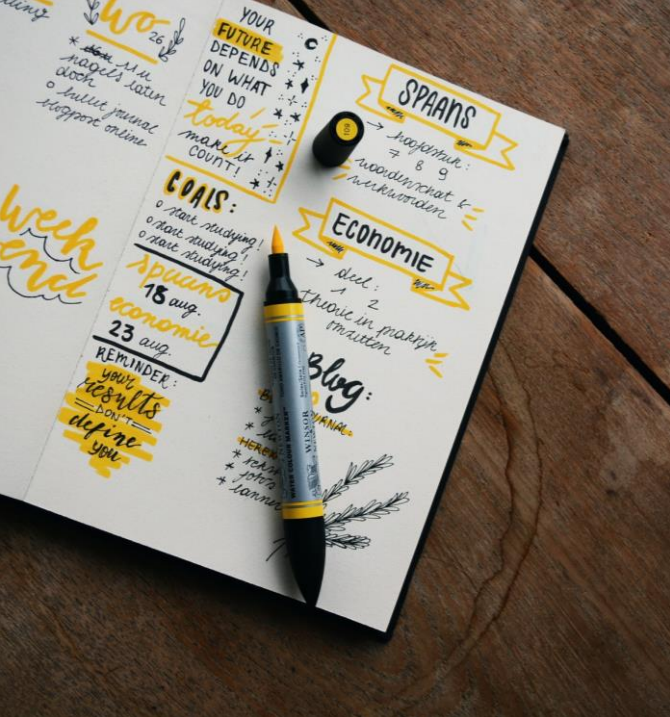 wo
26
* 11 u
nagels laten
doen
o bullet journal
blogpost online
week
end
YOUR
FUTURE
DEPENDS
ON WHAT
YOU DO
today
make it
COUNT!
GOALS:
o start studying!
o start studying!
o start studying!
spaans
18 aug.
economie
23 aug.
REMINDER:
your
results
DON'T
define
you
SPAANS
→ hoofdstuk:
7 8 9
woordenschat &
werkwoorden
ECONOMIE
→ deel:
1 2
theorie in praktijk
omzetten
Blog:
JOURNAL
* tekst
* foto's
* banner
WATER COLOUR MARKER
WINSOR
109